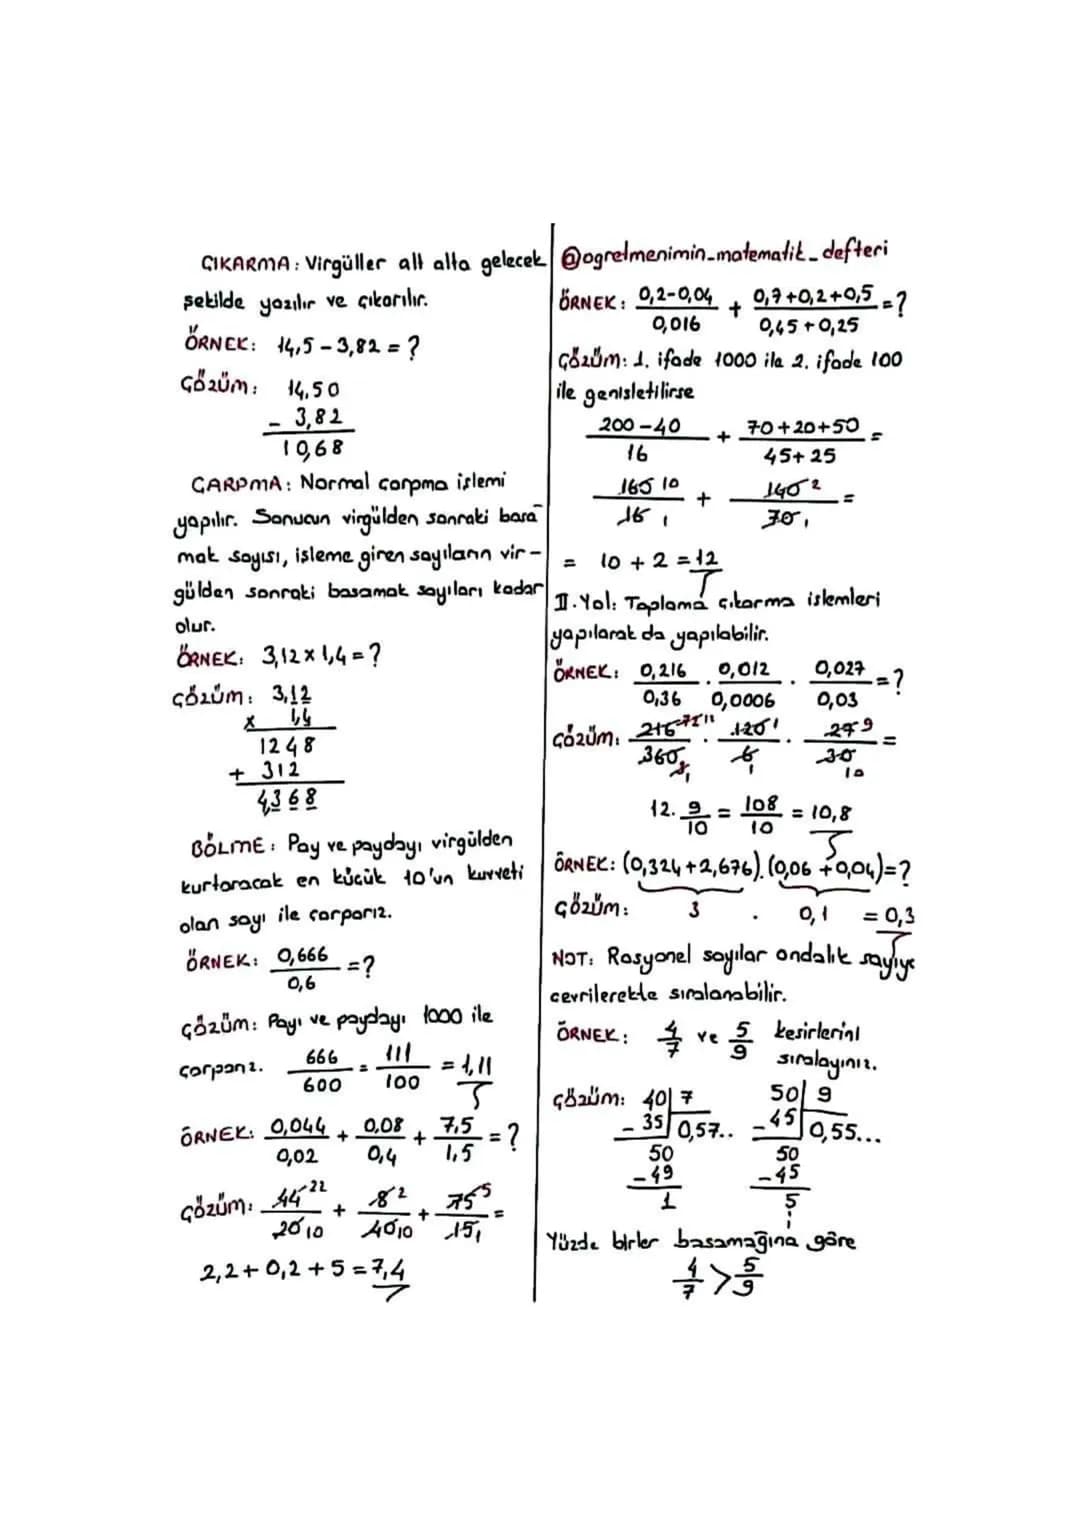 ÇIKARMA: Virgüller alt alta gelecek
şekilde yazılır ve çıkarılır.
ÖRNEK: 14,5 - 3,82 = ?
ÇÖZÜM: 14,50
- 3,82
10,68
ÇARPMA: Normal çarpma işlemi
yapılır. Sonucun virgülden sonraki basa
mak sayısı, işleme giren sayıların vir-
gülden sonraki basamak sayıları kadar
olur.
ÖRNEK: 3,12 x 1,4 = ?
ÇÖZÜM: 3,12
x 1,4
1248
+ 312
4,368
BÖLME: Pay ve paydayı virgülden
kurtaracak en küçük 10'un kuvveti
olan sayı ile çarparız.
ÖRNEK: 0,666/0,6 = ?
ÇÖZÜM: Payı ve paydayı 1000 ile
çarparız. 666/600 = 111/100 = 1,11
ÖRNEK: 0,044/0,02 + 0,08/0,4 + 7,5/1,5 = ?
ÇÖZÜM: 44 22/20 10 + 8 2/40 10 + 75 5/15 1 =
2,2 + 0,2 + 5 = 7,4
@ogretmenimin_matematik_defteri
ÖRNEK: 0,2-0,04/0,016 + 0,7+0,2+0,5/0,45+0,25 = ?
Çözüm: 1. ifade 1000 ile 2. ifade 100
ile genişletilirse
200-40/16 + 70+20+50/45+25 =
160 10/16 1 + 140 2/70 1 =
= 10 + 2 = 12
II. Yol: Toplama çıkarma işlemleri
yapılarak da yapılabilir.
ÖRNEK: 0,216/0,36 . 0,012/0,0006 . 0,027/0,03 = ?
ÇÖZÜM: 216/360 . 120/6 . 27 9/30 10 =
12. 9/10 = 108/10 = 10,8
ÖRNEK: (0,324+2,676).(0,06+0,04)=?
ÇÖZÜM: 3 . 0,1 = 0,3
NOT: Rasyonel sayılar ondalık sayıya
çevrilerekte sıralanabilir.
ÖRNEK: 4/7 ve 5/9 kesirlerini
sıralayınız.
ÇÖZÜM: 40 | 7 50 | 9
- 35 0,57.. - 45 0,55...
50 50
- 49 - 45
1 5
Yüzde birler basamağına göre
4/7 > 5/9